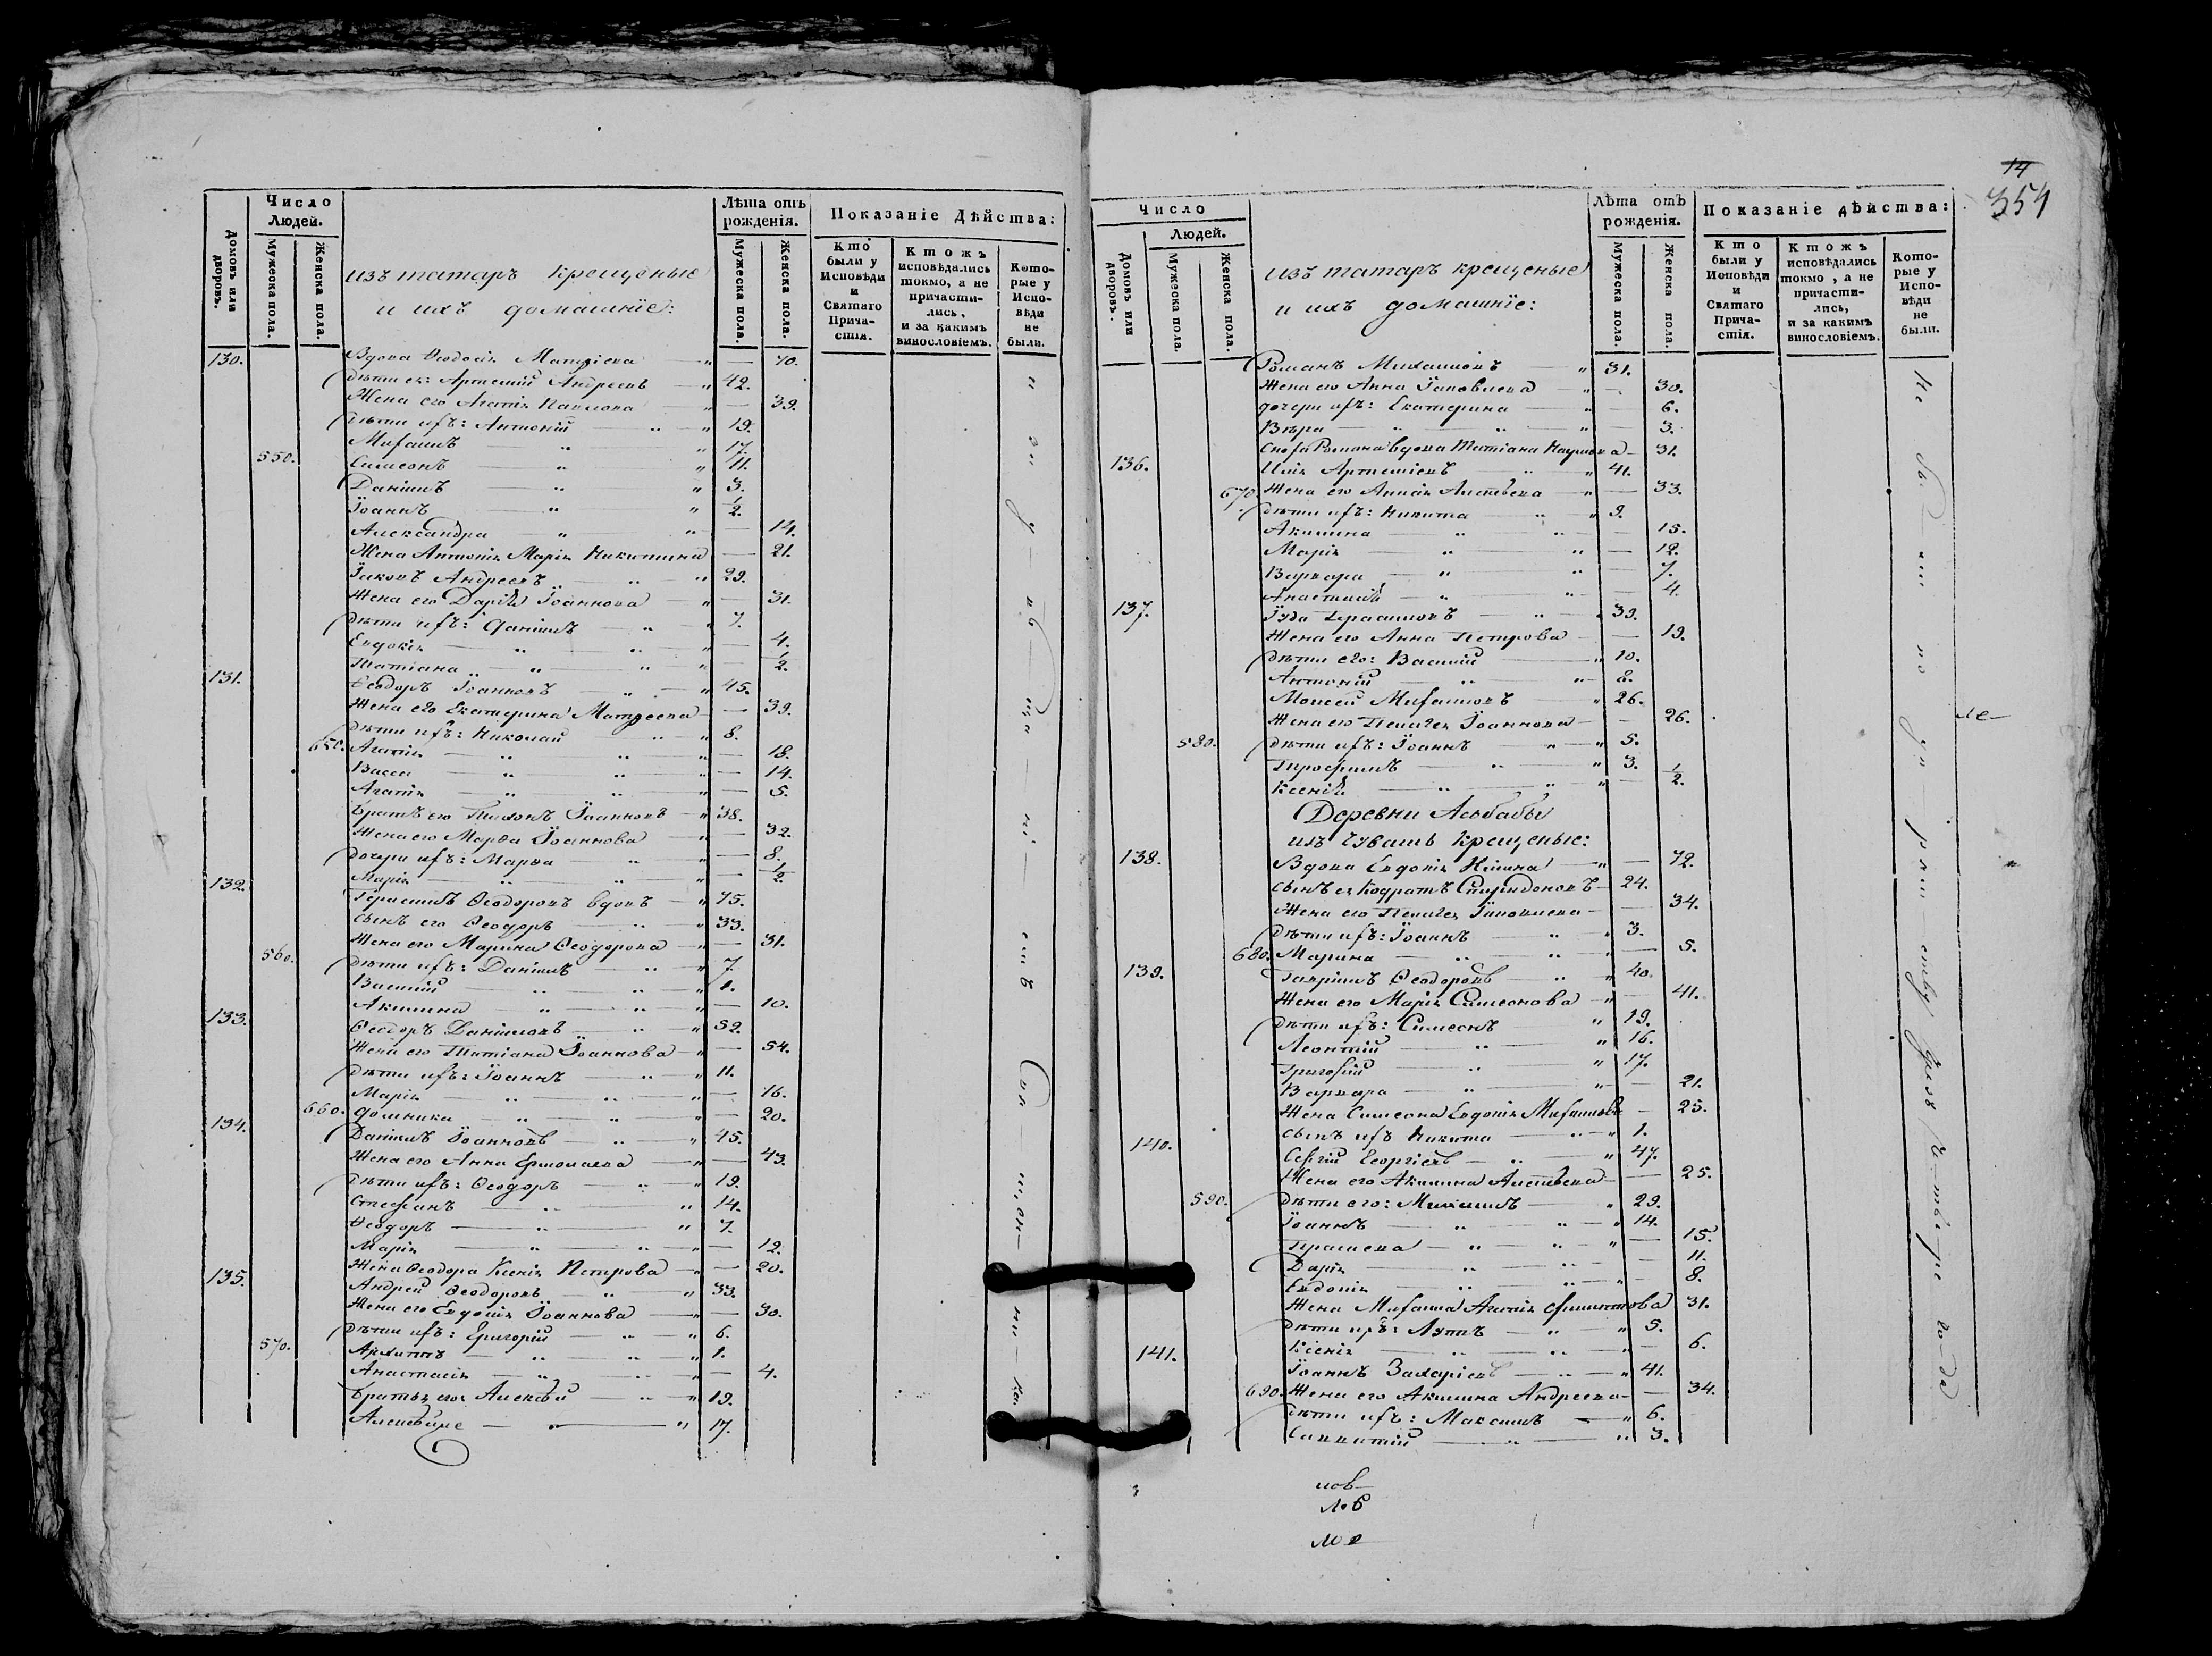 14
354
Число
Людей.
Домовъ или дворовъ.
Мужеска пола.
Женска пола.
изъ татаръ крещеные
и ихъ домашнїе:
Лѣта отъ
рожденїя.
Мужеска пола.
Женска пола.
Показанїе Дѣйства:
Кто были у Исповѣди и Святаго Причастїя.
Ктожъ исповѣдались токмо, а не причастились, и за какимъ винословїемъ.
Которые у Исповѣди не были.
130. Вдова Ѳеодосїя Матѳїева — 70.
дѣти ея: Артемїй Андреевъ — 42.
Жена его Агапїя Павлова — 39.
дѣти ихъ: Антонїй — 19.
Михаилъ — 17.
550. Симеонъ — 11.
Данїилъ — 3.
Їоаннъ — 1/2.
Александра — 14.
Жена Антонїя Марїя Никитина — 21.
Їаковъ Андреевъ — 29.
Жена его Дарїя Їоаннова — 31.
дѣти ихъ: Данїилъ — 7.
Евдокїя — 4.
Татїана — 1/2.
131. Ѳеодоръ Їоанновъ — 45.
Жена его Екатерина Матѳеева — 39.
дѣти ихъ: Николай — 8.
650. Агапїя — 18.
Васса — 14.
Агапїя — 5.
Братъ его Їоанновъ — 38.
Жена его Марѳа Їоаннова — 32.
дочери ихъ: Марѳа — 8.
Марїя — 1/2.
132. Герасимъ Ѳеодоровъ вдовъ — 75.
сынъ его Ѳеодоръ — 33.
Жена его Марина Ѳеодорова — 31.
560. дѣти ихъ: Данїилъ — 7.
Василїй — 1.
Акилина — 10.
133. Ѳеодоръ Данїиловъ — 52.
Жена его Татїана Їоаннова — 54.
дѣти ихъ: Їоаннъ — 11.
Марїя — 16.
660. Домника — 20.
134. Данїилъ Їоанновъ — 45.
Жена его Анна Ермолаева — 43.
дѣти ихъ: Ѳеодоръ — 19.
Стефанъ — 14.
Ѳеодоръ — 7.
Марїя — 12.
Жена Ѳеодора Ксенїя Петрова — 20.
135. Андрей Ѳеодоровъ — 33.
Жена его Евдокїя Їоаннова — 30.
дѣти ихъ: Григорїй — 6.
570. Архиппъ — 1.
Анастасїя — 4.
Братья его: Алексѣй — 19.
17.
Число
Людей.
Домовъ или дворовъ.
Мужеска пола.
Женска пола.
изъ татаръ крещеные
и ихъ домашнїе:
Лѣта отъ
рожденїя.
Мужеска пола.
Женска пола.
Показанїе дѣйства:
Кто были у Исповѣди и Святаго Причастїя.
Ктожъ исповѣдались токмо, а не причастились, и за какимъ винословїемъ.
Которые у Исповѣди не были.
Романъ Михаиловъ — 31.
Жена его Анна Їаковлева — 30.
дочери ихъ: Екатерина — 6.
Вѣра — 3.
Сноха Романа вдова Татїана Наумова — 31.
136. Илїя Артемїевъ — 41.
670. Жена его Аннїя — 33.
дѣти ихъ: Никита — 9.
Акилина — 15.
Марїя — 12.
Варвара — 7.
Анастасїя — 4.
137. Їуда Герасимовъ — 39.
Жена его Анна Петрова — 19.
дѣти его: Василїй — 10.
Антонїй — 8.
Моисей Михаиловъ — 26.
Жена его Пелагея Їоаннова — 26.
580. дѣти ихъ: Їоаннъ — 5.
Трофимъ — 3.
Ксенїя — 1/2.
Деревни Асьбабы
изъ Чувашъ крещеные:
138. Вдова Евдокїя Илїина — 72.
сынъ ея Кодратъ Спиридоновъ — 24.
Жена его Пелагея Їаковлева — 34.
дѣти ихъ: Їоаннъ — 3.
680. Марина — 5.
139. Гаврїилъ Ѳеодоровъ — 40.
Жена его Марїя Симеонова — 41.
дѣти ихъ: Симеонъ — 19.
Леонтїй — 16.
Григорїй — 17.
Варвара — 21.
Жена Симеона Евдокїя Михаилова — 25.
сынъ ихъ Никита — 1.
140. Сергїй Георгїевъ — 47.
Жена его Акилина — 25.
590. дѣти его: Михаилъ — 29.
Їоаннъ — 14.
15.
Дарїя — 11.
Евдокїя — 8.
Жена Михаила Агапїя Филиппова — 31.
дѣти ихъ: Луппъ — 5.
Ксенїя — 6.
141. Їоаннъ Захарїевъ — 41.
690. Жена его Акилина Андреева — 34.
дѣти ихъ: Максимъ — 6.
3.